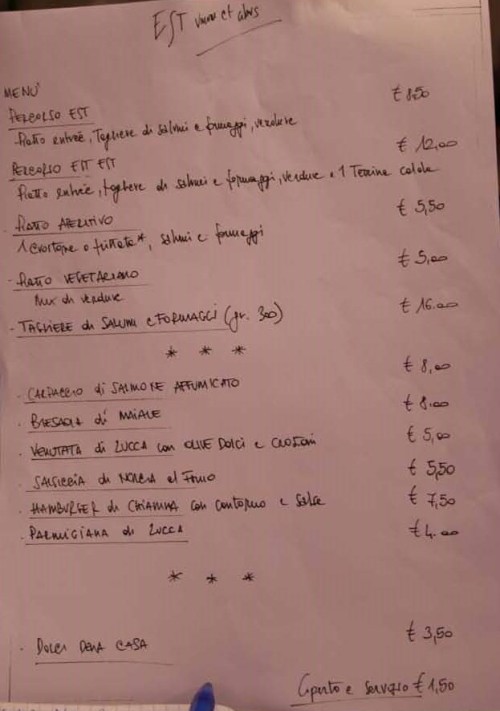 EST vinum et alvis
MENU'
PERCORSO EST € 8,50
Piatto entrée, Tagliere di salumi e formaggi, verdure
PERCORSO EST EST € 12,00
Piatto entrée, tagliere di salumi e formaggi, verdure e 1 Terrina calda
PIATTO APERITIVO € 5,50
1 crostone o frittata*, salumi e formaggi
- PIATTO VEGETARIANO € 5,00
Mix di verdure
- TAGLIERE di SALUMI e FORMAGGI (gr. 300) € 16.00
* * *
- CARPACCIO di SALMONE AFFUMICATO € 8,00
- BRESAOLA di MAIALE € 8.00
- VELLUTATA di ZUCCA con OLIVE DOLCI e CROSTONI € 5,00
- SALSICCIA di NORCIA al FORNO € 5,50
- HAMBURGER di CHIANINA con contorno e salse € 7,50
- PARMIGIANA di ZUCCA € 4.00
* * *
- DOLCI DELLA CASA € 3,50
Coperto e servizio € 1,50